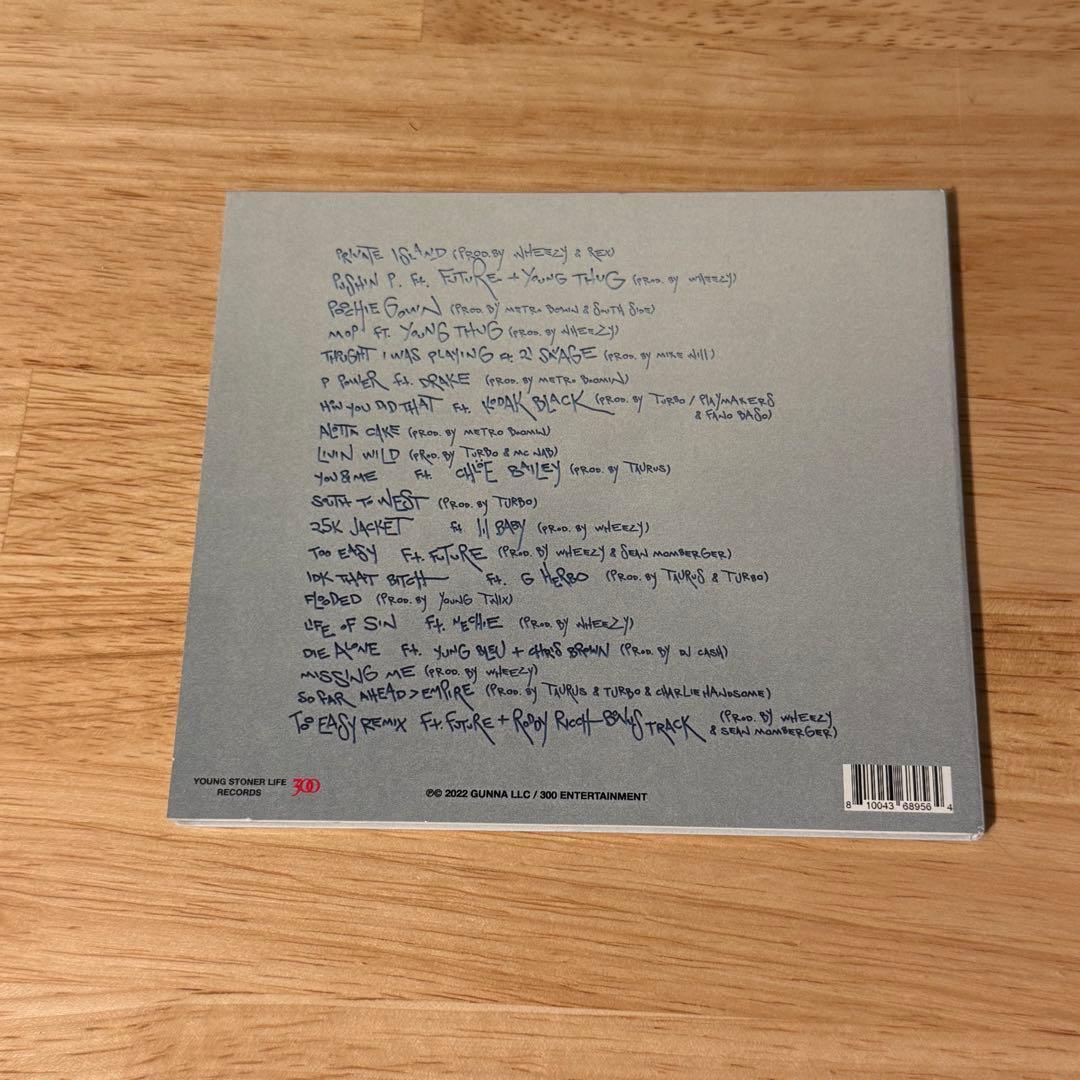 PRIVATE ISLAND (PROD. BY WHEEZY & REX)
PUSHIN P. Ft. FUTURE + YOUNG THUG (PROD. BY WHEEZY)
POOCHIE GOWN (PROD. BY METRO BOMIN & SOUTH SIDE)
MOP FT. YOUNG THUG (PROD. BY WHEEZY)
THOUGHT I WAS PLAYING 21 SAVAGE (PROD. BY MIKE WILL)
P POWER Ft. DRAKE (PROD. BY METRO BOOMIN)
HOW YOU DID THAT Ft. KODAK BLACK (PROD. BY TURBO / PLAYMAKERS
& FANO BASO)
ALOTTA CAKE (PROD. BY METRO BOOMIN)
LIVIN WILD (PROD. BY TURBO & MC NAB)
YOU & ME Ft. CHLÖE BAILEY (PROD. BY TAURUS)
SOUTH TO WEST (PROD. BY TURBO)
25K JACKET Ft lil BABY (PROD. BY WHEEZY)
TOO EASY Ft. FUTURE (PROD. BY WHEEZY & SEAN MOMBERGER)
IDK THAT BITCH Ft. G HERBO (PROD. BY TAURUS & TURBO)
FLOODED (PROD. BY YOUNG TWIX)
LIFE OF SIN Ft. NECHIE (PROD. BY WHEEZY)
DIE ALONE Ft. YUNG BLEU + CHRIS BROWN (PROD. BY DJ CASH)
MISSING ME (PROD. BY WHEEZY)
SO FAR AHEAD > EMPIRE (PROD. BY TAURUS & TURBO & CHARLIE HANDSOME)
TOO EASY REMIX Ft. FUTURE + RODDY RICCH - BONUS TRACK (PROD. BY WHEEZY
& SEAN MOMBERGER)
YOUNG STONER LIFE
RECORDS
300
℗© 2022 GUNNA LLC / 300 ENTERTAINMENT
8 10043 68956 4